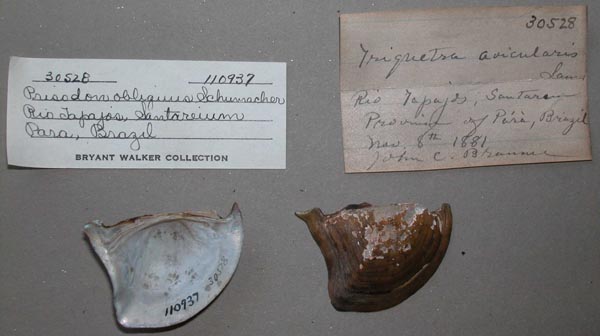 30528 110937
Prisodon obliquus Schumacher
Rio Tapajos, Santareium
Para, Brazil
BRYANT WALKER COLLECTION
30528
Triquetra avicularis
Lam
Rio Tapajós, Santarem
Province of Párà, Brazil
Nov. 8th 1881
John C. Branner
110937
30528